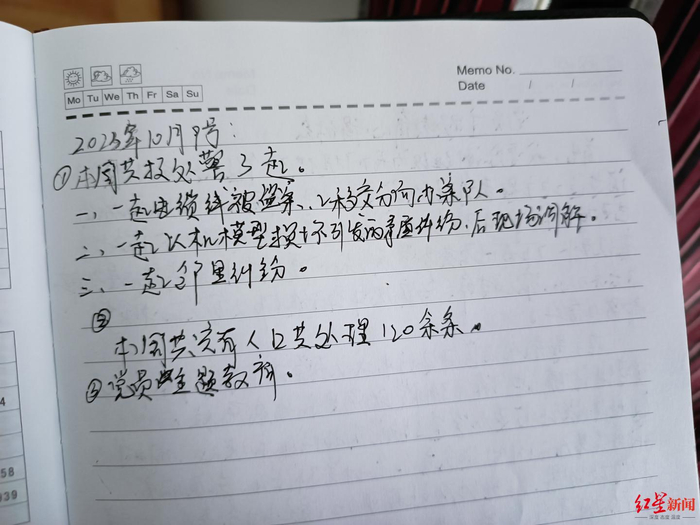 Memo No.
Mo Tu We Th Fr Sa Su
Date / /
2023年10月9号:
①本周共接处警3起。
一、一起电缆线被盗案,已移交分局办案队。
二、一起以机模型损坏引发的矛盾纠纷,后现场调解。
三、一起邻里纠纷。
②
本周共流有人口共处理120余条。
③党员主题教育。
4
58
939
红星新闻